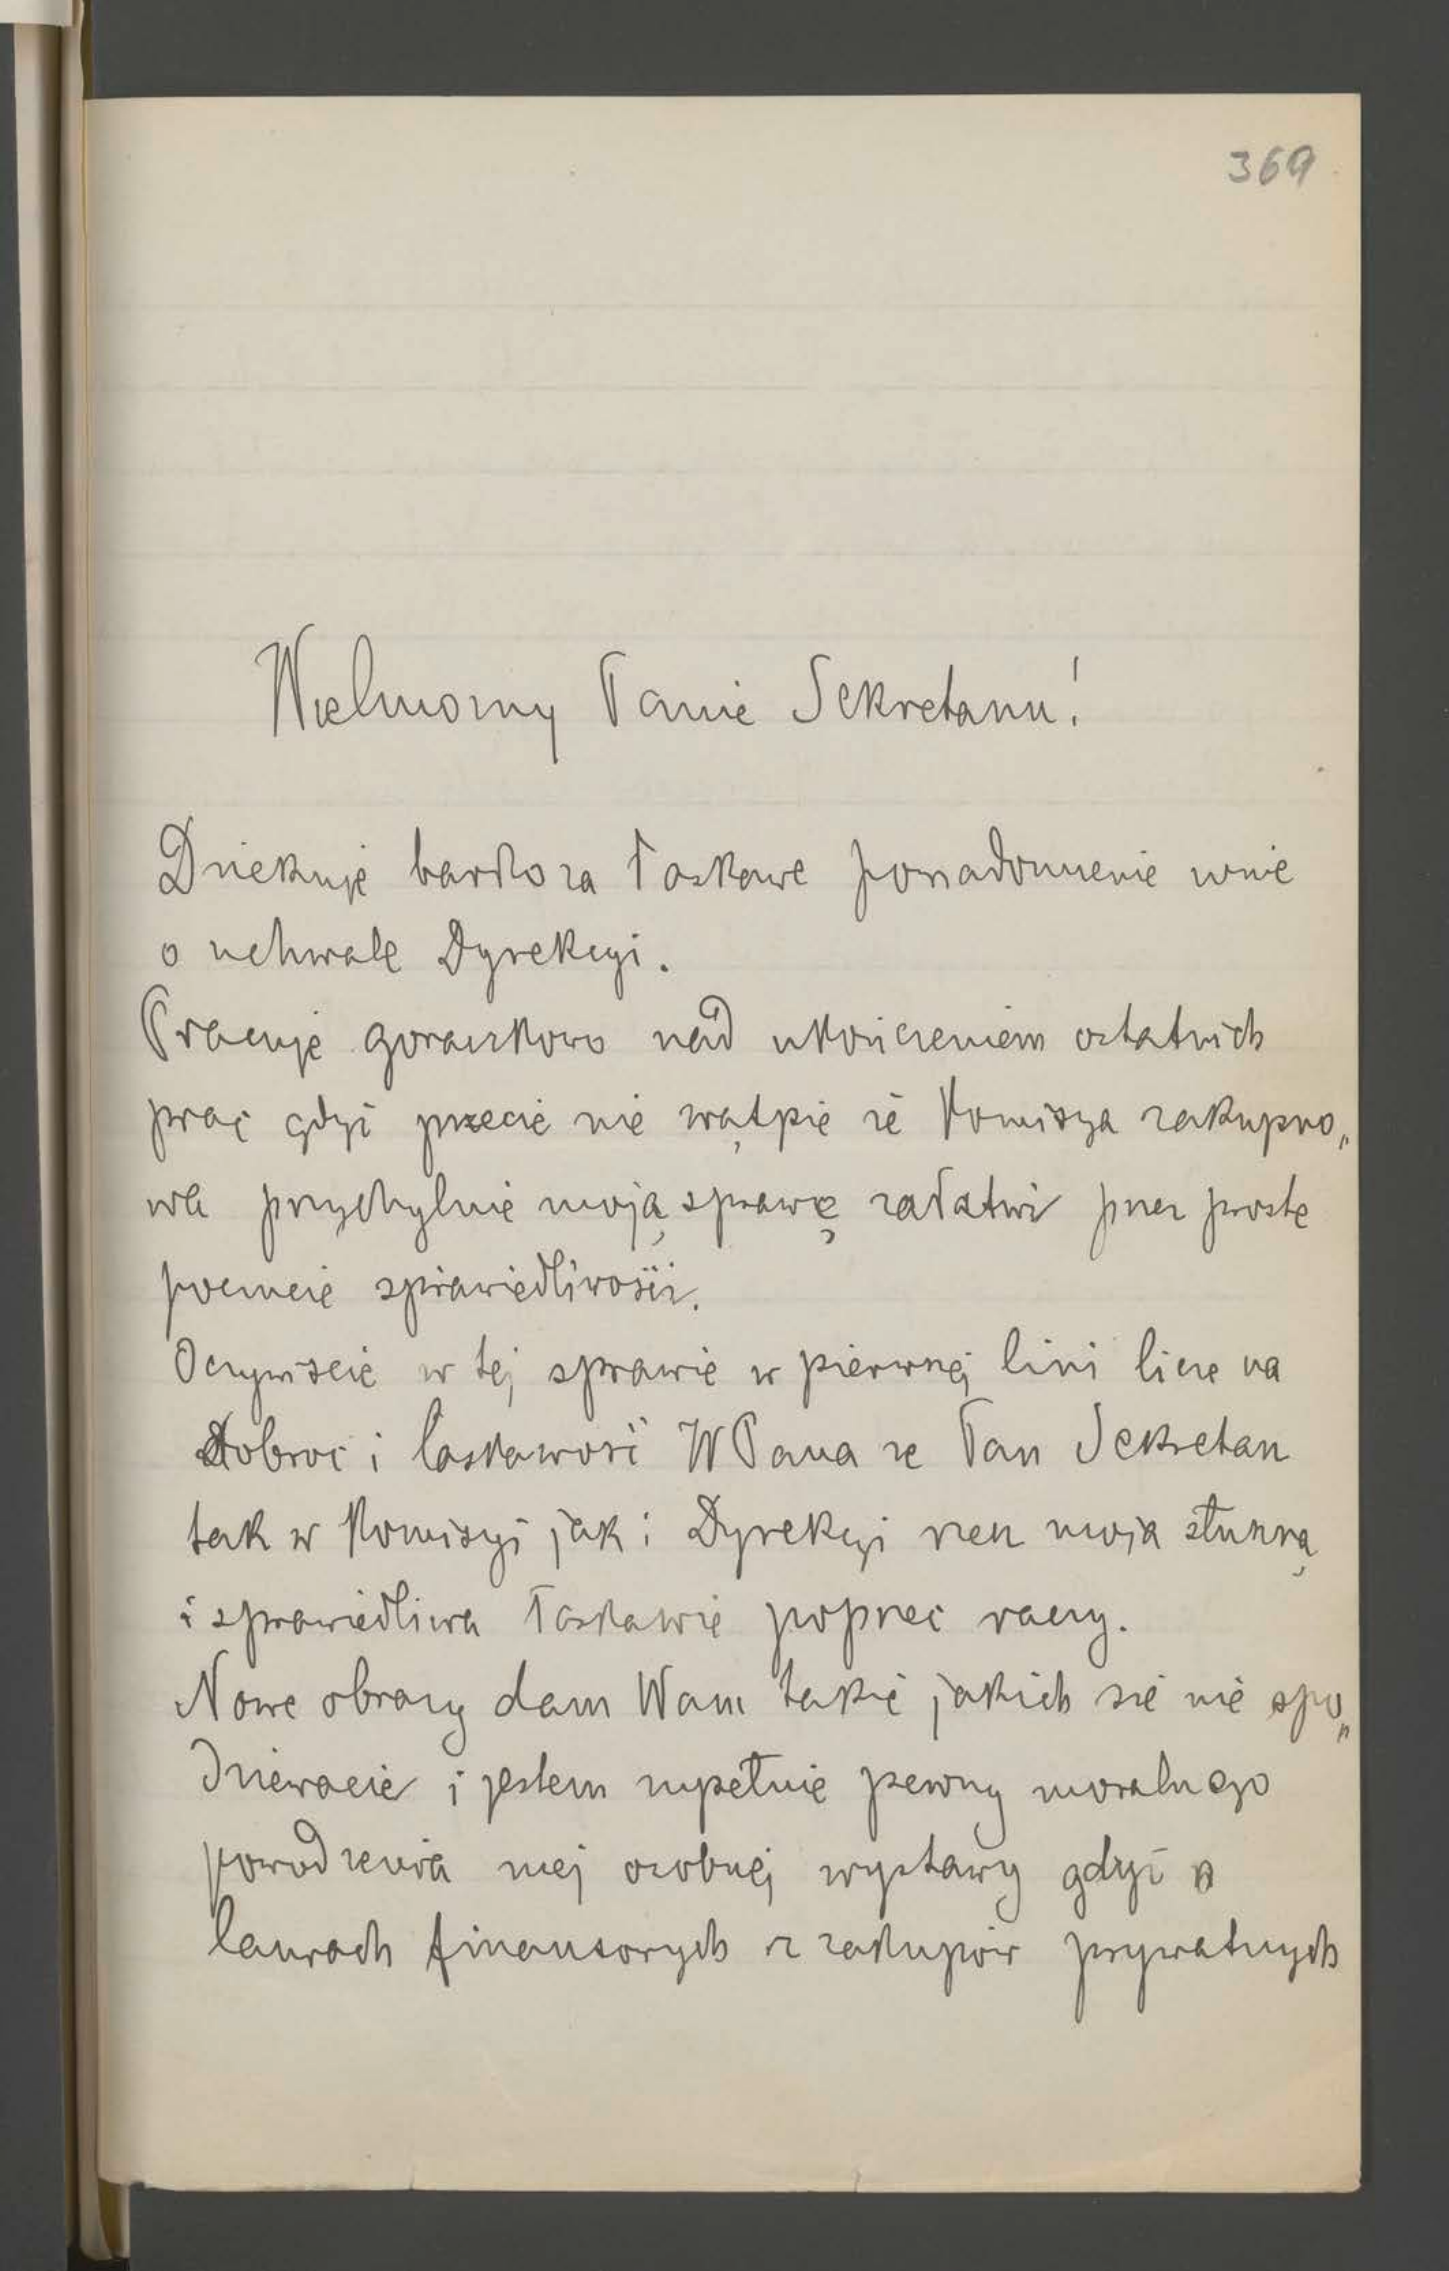 369
Wielmożny Panie Sekretarzu!
Dziekuje bardzo za łaskawe powiadomienie mnie
o uchwale Dyrekcyi.
Pracuje goraczkowo nad ukończeniem ostatnich
prac gdyż przecie nie wątpie że Komisya zakupno„
wa przychylnie moją sprawę załatwi przez proste
poczucie sprawiedliwości.
Oczywiscie w tej sprawie w pierwszej lini licze na
dobroc i laskawość WPana ze Pan Sekretarz
tak w Komisyi jak i Dyrekcyi rzecz moja słuszną
i sprawiedliwa łaskawie poprzec raczy.
Nowe obrazy dam Wam takie jakich sie nie spo„
dziewacie i jestem zupełnie pewny moralnego
powodzenia mej osobnej wystawy gdyż o
laurach finansowych z zakupów prywatnych